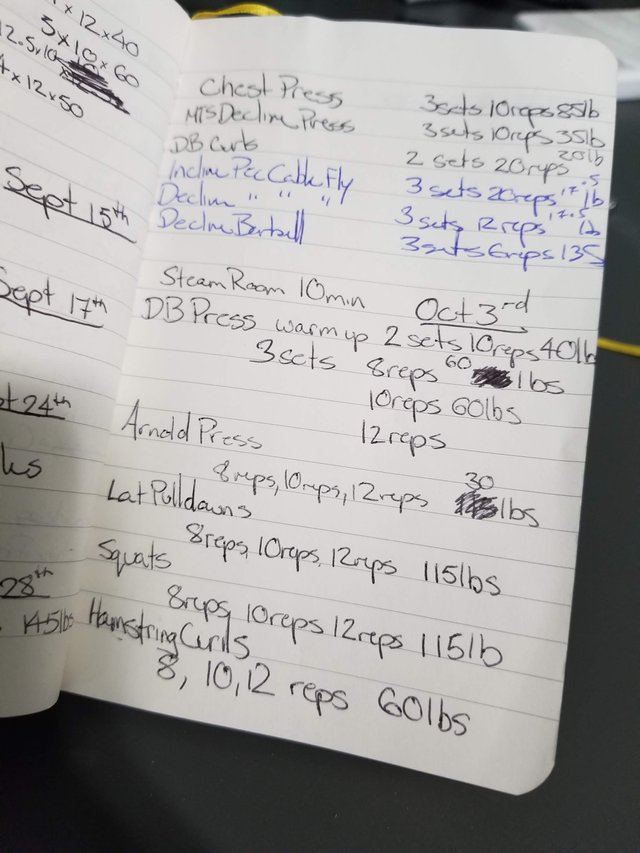 x 12 x 40
5 x 10 x 60
12.5 x 10
x 12 x 50
Sept 15th
Sept 17th
24th
28th
145lbs
Chest Press 3sets 10reps 85lb
MTS Decline Press 3sets 10reps 35lb
DB Curls 2 sets 20reps 20lb
Incline Pec Cable Fly 3 sets 20reps 17.5 lb
Decline " " " 3 sets 12 reps 17.5 lb
Decline Barball 3sets 6reps 135
Steam Room 10min
Oct 3rd
DB Press warm up 2 sets 10reps 40lb
3 sets 8reps 60 lbs
10reps 60lbs
12reps
Arnold Press
8reps, 10reps, 12reps 30 lbs
Lat Pulldowns
8reps, 10reps, 12reps 115lbs
Squats
8reps, 10reps 12reps 115lb
Hamstring Curls
8, 10, 12 reps 60lbs